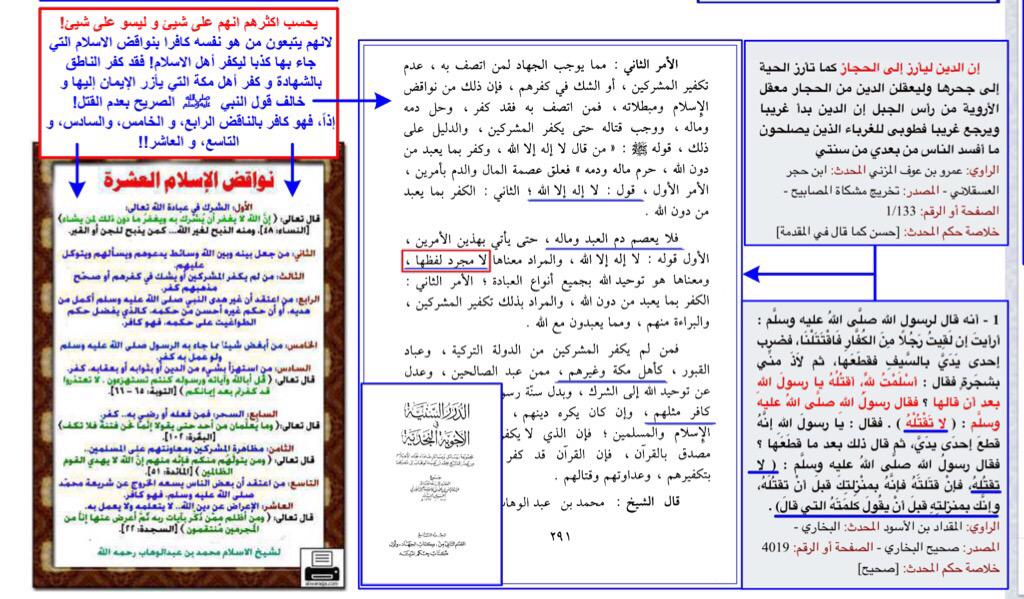 إن الدين ليارز إلى الحجاز كما تارز الحية
إلى جحرها وليعقلن الدين من الحجار معقل
الأروية من رأس الجبل إن الدين بدأ غريبا
ويرجع غريبا فطوبى للغرباء الذين يصلحون
ما أفسد الناس من بعدي من سنتي
الراوي: عمرو بن عوف المزني المحدث: ابن حجر
العسقلاني - المصدر: تخريج مشكاة المصابيح -
الصفحة أو الرقم: 1/133
خلاصة حكم المحدث: [حسن كما قال في المقدمة]
1 - أنه قال لرسول الله صلَّى اللهُ عليه وسلَّم :
أرأيت إن لقيت رَجُلًا مِنَ الكُفَّارِ فَاقْتَتَلْنَا، فضرب
إحدى يَدَيَّ بِالسيفِ فقطَعَها، ثم لاذَ منِّي
بشجرةٍ فقال : أسْلَمْتُ للهِ، أَقتُلُهُ يا رسولَ اللهِ
بعد أن قالها ؟ فقال رسولُ اللهِ صلَّى اللهُ عليه
وسلَّم : ( لا تَقْتُلْهُ ) . فقال : يا رسول اللهِ إنَّهُ
قطعَ إحدى يديَّ، ثم قال ذلك بعد ما قطَعَها ؟
فقال رسول الله صلى الله عليه وسلم : ( لا
تقتُلْهُ، فإنْ قتَلتَهُ فإنَّهُ بمنزِلتِكَ قبلَ انْ تقتُلَهُ،
وإنَّك بمنزلتِهِ قبلَ أنْ يقولَ كلمتَهُ التي قال) .
الراوي: المقداد بن الأسود المحدث: البخاري -
المصدر: صحيح البخاري - الصفحة أو الرقم: 4019
خلاصة حكم المحدث: [صحيح]
الأمر الثاني : مما يوجب الجهاد لمن اتصف به ، عدم
تكفير المشركين ، أو الشك في كفرهم ، فإن ذلك من نواقض
الإسلام ومبطلاته ، فمن اتصف به فقد كفر ، وحل دمه
وماله ، ووجب قتاله حتى يكفر المشركين ، والدليل على
ذلك ، قوله ﷺ : « من قال لا إله إلا الله ، وكفر بما يعبد من
دون الله ، حرم ماله ودمه » فعلق عصمة المال والدم بأمرين ،
الأمر الأول ، قول : لا إله إلا الله ؛ الثاني : الكفر بما يعبد
من دون الله .
فلا يعصم دم العبد وماله ، حتى يأتي بهذين الأمرين ،
الأول قوله : لا إله إلا الله ، والمراد معناها لا مجرد لفظها ،
ومعناها هو توحيد الله بجميع أنواع العبادة ؛ الأمر الثاني :
الكفر بما يعبد من دون الله ، والمراد بذلك تكفير المشركين ،
والبراءة منهم ، ومما يعبدون مع الله .
فمن لم يكفر المشركين من الدولة التركية ، وعباد
القبور ، كأهل مكة وغيرهم ، ممن عبد الصالحين ، وعدل
عن توحيد الله إلى الشرك ، وبدل سنّة رسو
كافر مثلهم ، وإن كان يكره دينهم ،
الإسلام والمسلمين ؛ فإن الذي لا يكفر
مصدق بالقرآن ، فإن القرآن قد كفر
بتكفيرهم ، وعداوتهم وقتالهم .
قال الشيخ : محمد بن عبد الوهاب
٢٩١
الدرر السنية
في
الأجوبة النجدية
يحسب اكثرهم انهم على شيئ و ليسو على شيئ!
لانهم يتبعون من هو نفسه كافرا بنواقض الاسلام التي
جاء بها كذبا ليكفر أهل الاسلام! فقد كفر الناطق
بالشهادة و كفر أهل مكة التي يأزر الإيمان إليها و
خالف قول النبي ﷺ الصريح بعدم القتل!
إذاً، فهو كافر بالناقض الرابع، و الخامس، والسادس، و
التاسع، و العاشر!!
نواقض الإسلام العشرة
الأول: الشرك في عبادة الله تعالى:
قال تعالى: ( إنَّ اللَّهَ لا يغفر أن يُشْرَكَ به ويغفرُ ما دون ذلك لمن يشاء)
[النساء: ٤٨]. ومنه الذبح لغير الله... كمن يذبح للجن أو القبر.
الثاني: من جعل بينه وبين الله وسائط يدعوهم ويسألهم ويتوكل
عليهم.
الثالث: من لم يكفر المشركين أو يشك في كفرهم أو صحح
مذهبهم كفر.
الرابع: من اعتقد أن غير هدى النبي صلى الله عليه وسلم أكمل من
هديه، أو أن حكم غيره أحسن من حكمه. كالذي يفضل حكم
الطواغيت على حكمه. فهو كافر.
الخامس: من أبغض شيئا مما جاء به الرسول صلى الله عليه وسلم
ولو عمل به كفر.
السادس: من استهزأ بشيء من الدين أو بثوابه أو بعقابه. كفر.
قال تعالى ( قل أبالله وآياته ورسوله كنتم تستهزءون . لا تعتذروا
قد كفرتم بعد إيمانكم ) [التوبة: ٦٥ - ٦٦].
السابع: السحر: فمن فعله أو رضي به.. كفر.
قال تعالى: ( وما يُعلِّمان من أحد حتى يقولا إنَّما نحن فتنة فلا تكفر)
[البقرة: ١٠٢].
الثامن: مظاهرة المشركين ومعاونتهم على المسلمين..
( ومن يتولَّهم منكم فإنَّه منهم إنَّ اللَّه لا يهدي القوم
الظالمين ) [المائدة: ٥١].
التاسع: من اعتقد أن بعض الناس يسعه الخروج عن شريعة محمد
صلى الله عليه وسلم. فهو كافر.
العاشر: الإعراض عن دين الله.. لا يتعلمه ولا يعمل به.
قال تعالى: ( ومن أظلم ممن ذُكِّر بآيات ربه ثُمَّ أعرض عنها إنَّا من
المجرمين مُنتقمون ) [السجدة: ٢٢].
لشيخ الاسلام محمد بن عبدالوهاب رحمه الله